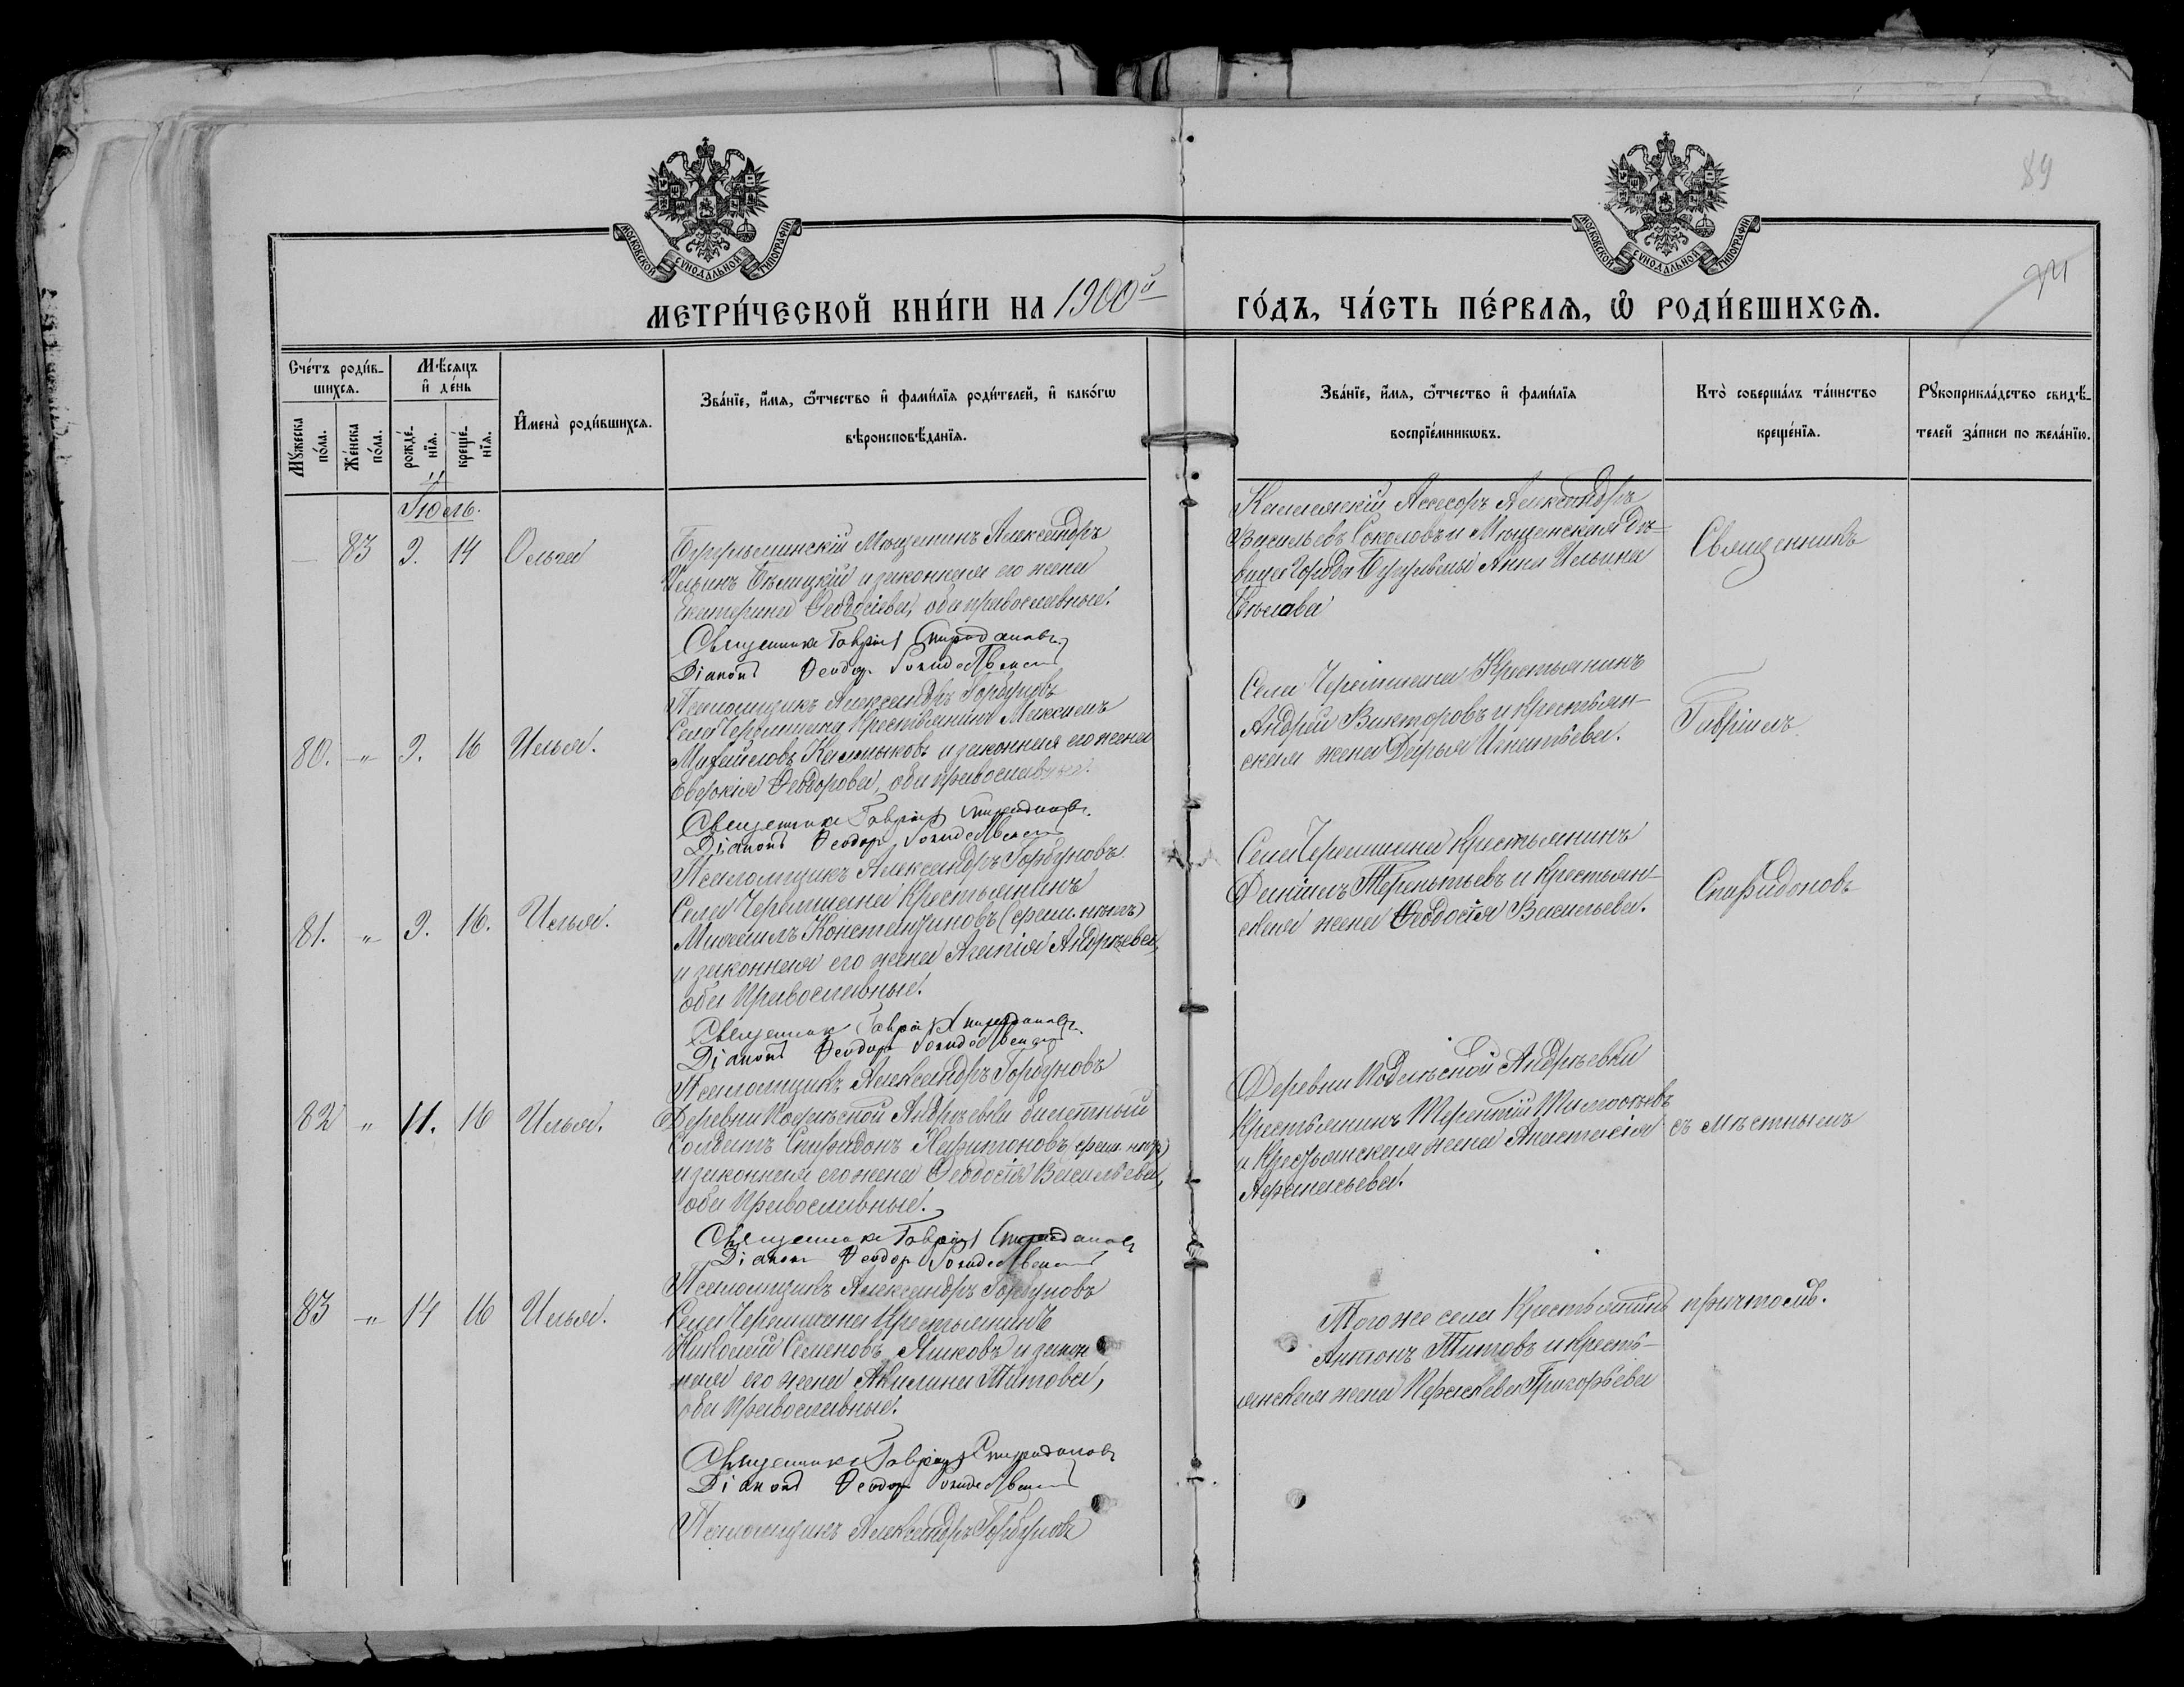 89
МОСКОВСКОЙ СѴНОДАЛЬНОЙ ТИПОГРАФІИ.
МОСКОВСКОЙ СѴНОДАЛЬНОЙ ТИПОГРАФІИ.
МЕТРИ́ЧЕСКОЙ КНИ́ГИ НА 1900й
ГО́ДЪ, ЧА́СТЬ ПЕ́РВАѦ, Ѽ РОДИ́ВШИХСѦ.
Сче́тъ роди́в-
шихсѧ.
Мꙋ́жеска
по́ла.
Же́нска
по́ла.
Мѣ́сѧцъ
и҆ де́нь
рожде́-
нїѧ.
креще́-
нїѧ.
И҆мена̀ роди́вшихсѧ.
Зва́нїе, и҆́мѧ, ѻ҆́тчество и҆ фами́лїѧ роди́телей, и҆ како́гѡ
вѣроисповѣ́данїѧ.
Зва́нїе, и҆́мѧ, ѻ҆́тчество и҆ фами́лїѧ
воспрїе́мникѡвъ.
Кто̀ соверша́лъ та́инство
креще́нїѧ.
Рꙋкоприкла́дство свидѣ́-
телей за́писи по жела́нїю.
Іюль.
83 9. 14 Ольга
Бугульминскій Мѣщанинъ Александръ
Ильинъ Бѣлицкій и законная его жена
Екатерина Ѳеодосіева, оба православные.
Священникъ Гавріил Спиридоновъ
Діаконъ Ѳеодор Рождественскій
Псаломщикъ Александръ Горбуновъ
Коллежскій Ассесоръ Александръ
Васильевъ Соколовъ и Мѣщанская дѣ-
вица города Бугульмы Анна Ильина
Священникъ
80. -"- 9. 16 Илья.
Села Черемшана Крестьянинъ Максимъ
Михайловъ Калмыковъ и законная его жена
Евдокія Ѳеодорова, оба православные.
Священникъ Гавріил Спиридоновъ
Діаконъ Ѳеодор Рождественскій
Псаломщикъ Александръ Горбуновъ
Села Черемшана Крестьянинъ
Андрей Викторовъ и крестьян-
ская жена Дарья Игнатьева.
Гавріилъ
81. " 9. 16. Илья.
Села Черемшана Крестьянинъ
Михаилъ Константиновъ
и законная его жена Агапія Андреева,
оба Православные.
Священник Гавріил Спиридоновъ
Діаконъ Ѳеодор Рождественскій
Псаломщикъ Александръ Горбуновъ
Села Черемшана крестьянинъ
Даніилъ Терентьевъ и крестьян-
ская жена Ѳеодосія Васильева.
Спиридоновъ
82 " 11. 16 Илья.
Деревни Подлѣсной Андреевки билетный
Солдатъ Спиридонъ Харитоновъ
и законная его жена Ѳеодосія Васильева,
оба Православные.
Священникъ Гавріил Спиридоновъ
Діаконъ Ѳеодор Рождественскій
Псаломщикъ Александръ Горбуновъ
Деревни Подлѣсной Андреевки
Крестьянинъ Терентій Тимоѳеевъ
и Крестьянская жена Анастасія
Аѳанасьева.
съ мѣстнымъ
83 -"- 14 16 Илья.
Села Черемшана Крестьянинъ
Николай Семеновъ и закон
ная его жена Акилина Титова,
оба Православные.
Священникъ Гавріил Спиридоновъ
Діаконъ Ѳеодор Рождественскій
Псаломщикъ Александръ Горбуновъ
Того же села Крестьянинъ
Антонъ Титовъ и кресть-
янская жена Параскева Григорьева
причтомъ.